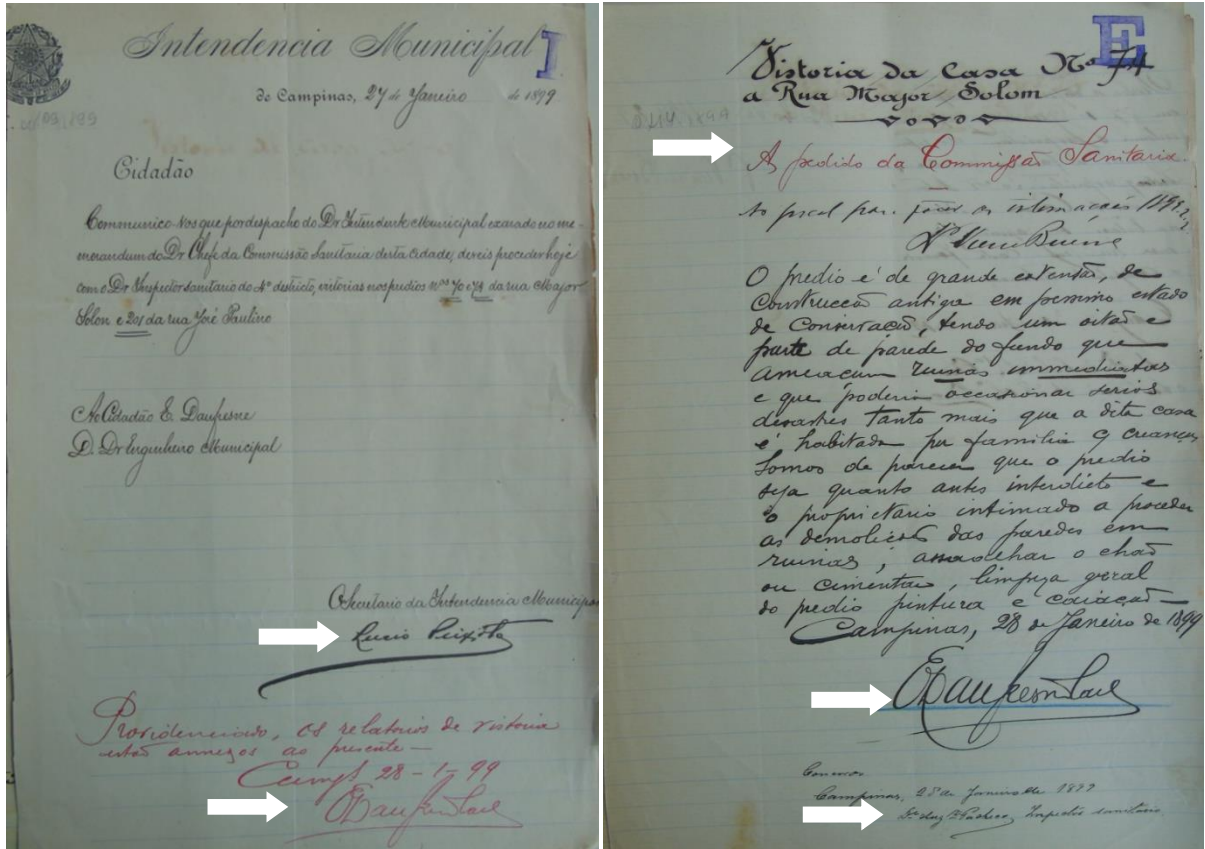 Intendencia Municipal
I
de Campinas, 27 de Janeiro de 1899
Cidadão
Communico-vos que por despacho do Dr Intendente Municipal exarado no me-
morandum do Dr Chefe da Commissão Sanitaria desta cidade, deveis proceder hoje
com o Dr Inspector sanitario do 4º districto, vistorias nos predios nos 70 e 74 da rua Major
Solon e 201 da rua José Paulino
Ao Cidadão E. Daufresne
D. Dr Engenheiro Municipal
O Secretario da Intendencia Municipal
Lucio Peixoto
Providenciado, os relatorios de vistoria
estão annexos ao presente
28-1-99
E
Vistoria da Casa No 74
a Rua Major Solom
A pedido da Commissão Sanitaria.
Ao fiscal para fazer as intimações
O predio é de grande extensão, de
Construcção antiga em pessimo estado
de Conservação, tendo um oitão e
parte de parede do fundo que
ameaçam ruinas immediatas
e que poderia occasionar serios
desastres tanto mais que a dita casa
é habitada por familia e creanças
Somos de parecer que o predio
seja quanto antes interdicto e
o proprietario intimado a proceder
as demolições das paredes em
ruinas, assoalhar o chão
ou cimentar, limpeza geral
do predio pintura e caiação
Campinas, 28 de Janeiro de 1899
Campinas, 28 de Janeiro de 1899
Pacheco, Inspector sanitario